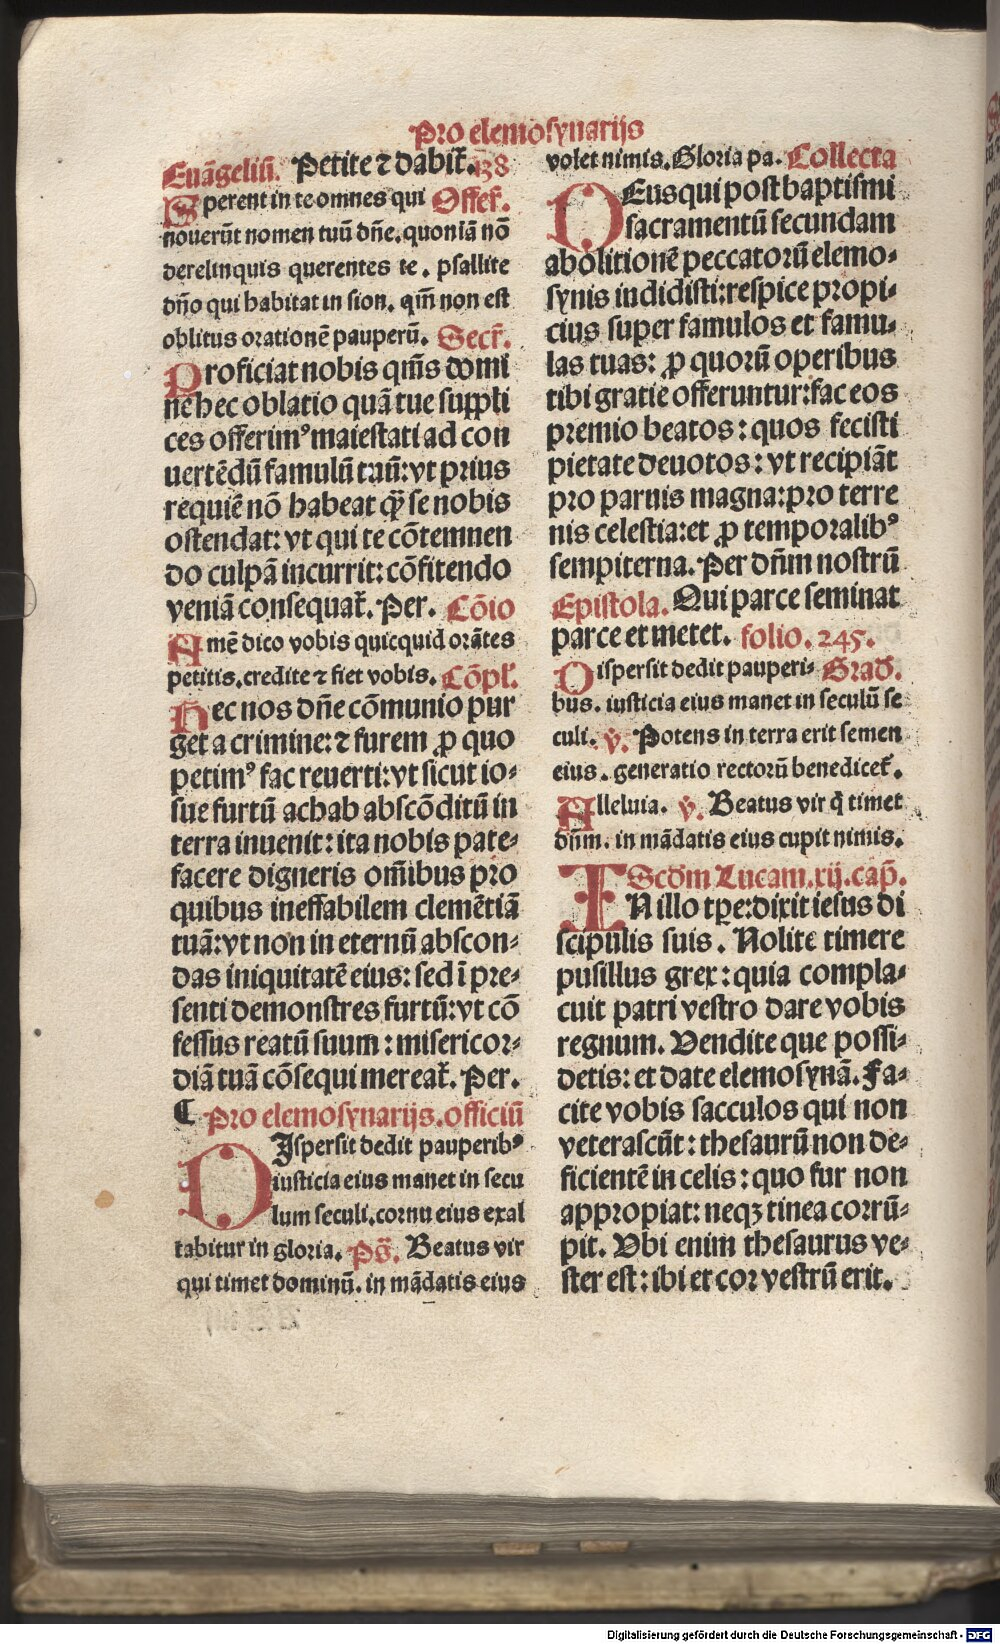 Pro elemosynarijs
Euãgeliũ. Petite ⁊ dabit᷑. 138
Sperent in te omnes qui Offer᷑.
nouerũt nomen tuũ dñe. quoniã nõ
derelinquis querentes te. psallite
dño qui habitat in sion. qm̃ non est
oblitus orationẽ pauperũ. Secr᷑.
Proficiat nobis qm̃s domi
ne hec oblatio quã tue suppli
ces offerimꝰ maiestati ad con
uertẽdũ famulũ tuũ: vt prius
requiẽ nõ habeat q̃ȝ se nobis
ostendat: vt qui te cõtemnen
do culpã incurrit: cõfitendo
veniã consequat᷑. Per. Cõio
Amẽ dico vobis quicquid orãtes
petitis. credite ⁊ fiet vobis. Cõpl᷑.
Hec nos dñe cõmunio pur
get a crimine: ⁊ furem ꝓ quo
petimꝰ fac reuerti: vt sicut io⸗
sue furtũ achab abscõditũ in
terra inuenit: ita nobis pate⸗
facere digneris om̃ibus pro
quibus ineffabilem clemẽtiã
tuã: vt non in eternũ abscon⸗
das iniquitatẽ eius: sed ĩ pre⸗
senti demonstres furtũ: vt cõ
fessus reatũ suum: misericor⸗
diã tuã cõsequi mereat᷑. Per.
¶ Pro elemosynarijs. officiũ
DIspersit dedit pauperibꝰ
iusticia eius manet in secu
lum seculi. cornu eius exal
tabitur in gloria. Ps̃. Beatus vir
qui timet dominũ. in mãdatis eius
volet nimis. Gloria pa. Collecta
DEus qui post baptismi
sacramentũ secundam
abolitionẽ peccatorũ elemo⸗
synis indidisti: respice propi⸗
cius super famulos et famu⸗
las tuas: ꝓ quorũ operibus
tibi gratie offeruntur: fac eos
premio beatos: quos fecisti
pietate deuotos: vt recipiãt
pro paruis magna: pro terre
nis celestia: et ꝓ temporalibꝰ
sempiterna. Per dñm nostrũ
Epistola. Qui parce seminat
parce et metet. folio. 245.
Dispersit dedit pauperi⸗ Grad̃.
bus. iusticia eius manet in seculũ se
culi. ℣. Potens in terra erit semen
eius. generatio rectorũ benedicet᷑.
Alleluia. ℣. Beatus vir q̃ timet
dñm. in mãdatis eius cupit nimis.
Scd̃m Lucam. xij. cap̃.
IN illo tp̃e: dixit iesus di
scipulis suis. Nolite timere
pusillus grex: quia compla⸗
cuit patri vestro dare vobis
regnum. Vendite que possi⸗
detis: et date elemosynã. Fa⸗
cite vobis sacculos qui non
veterascũt: thesaurũ non de⸗
ficientẽ in celis: quo fur non
appropiat: neqȝ tinea corrũ⸗
pit. Vbi enim thesaurus ve⸗
ster est: ibi et cor vestrũ erit.
Digitalisierung gefördert durch die Deutsche Forschungsgemeinschaft - DFG